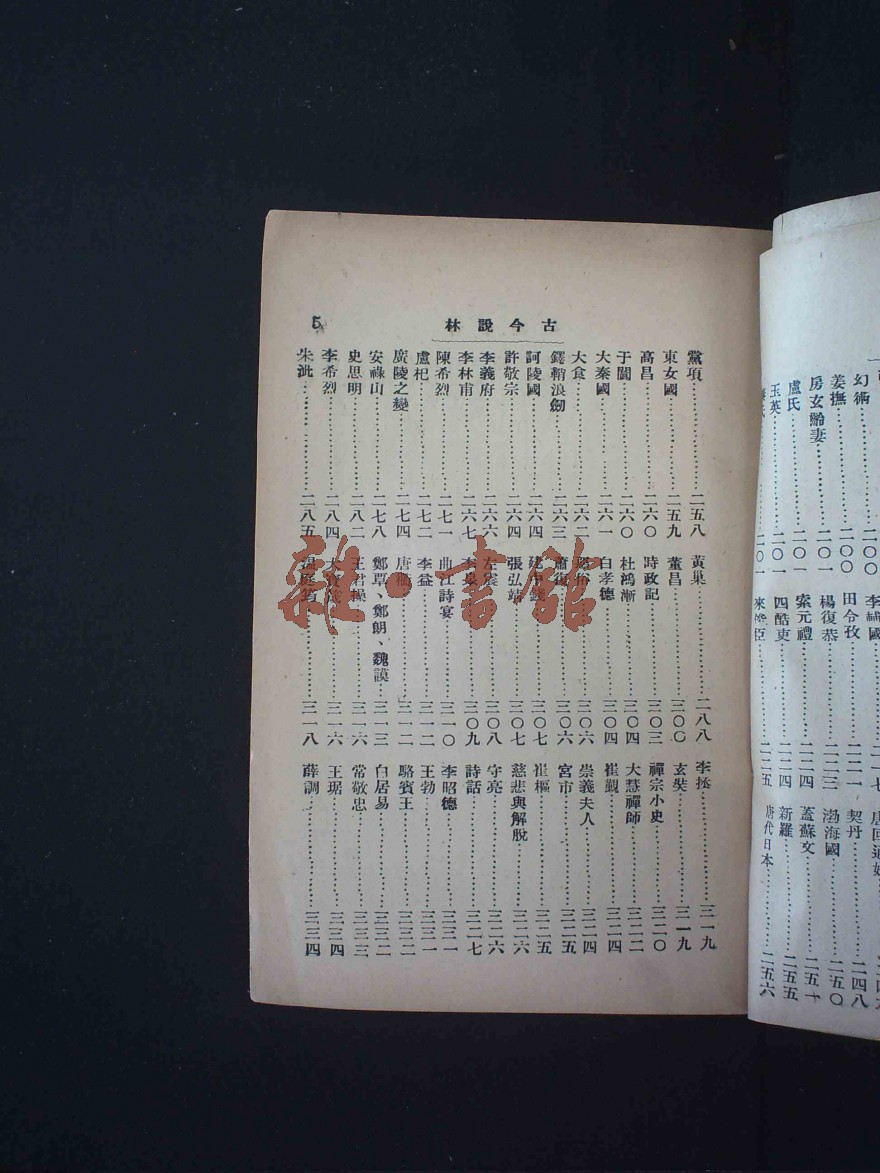 幻術……二〇〇
姜撫……二〇〇
房玄齡妻……二〇一
盧氏……二〇一
玉英……二〇一
二〇一
李輔國
田令孜……二二一
楊復恭……二二三
索元禮……二二四
四酷吏……二二四
來俊臣……二二五
唐回通好
契丹……二四八
渤海國……二五〇
蓋蘇文……二五一
新羅……二五五
唐代日本……二五六
古今說林
5
黨項……二五八
東女國……二五九
高昌……二六〇
于闐……二六〇
大秦國……二六一
大食……二六二
鐸鞘浪劒……二六三
訶陵國……二六四
許敬宗……二六四
李義府……二六六
李林甫……二六七
陳希烈……二七一
盧杞……二七二
廣陵之變……二七四
安祿山……二七八
史思明……二八二
李希烈……二八四
朱泚……二八五
黃巢……二八八
董昌……三〇〇
時政記……三〇三
杜鴻漸……三〇四
白孝德……三〇四
三〇六
蕭復……三〇六
建中錢……三〇七
張弘靖……三〇七
左震……三〇八
三〇九
曲江詩宴……三一〇
李益……三一二
唐衢……三一二
鄭覃、鄭朗、魏謨……三一三
王君操……三一六
三一六
溫庭筠……三一八
李拯……三一九
玄奘……三一九
禪宗小史……三二〇
大慧禪師……三二二
崔覲……三二四
崇義夫人……三二四
宮市……三二五
崔樞……三二五
慈悲與解脫……三二六
守亮……三二六
詩話……三二七
李昭德……三三一
王勃……三三一
駱賓王……三三二
白居易……三三二
常敬忠……三三三
王琚……三三四
薛調……三三四
雜·書館